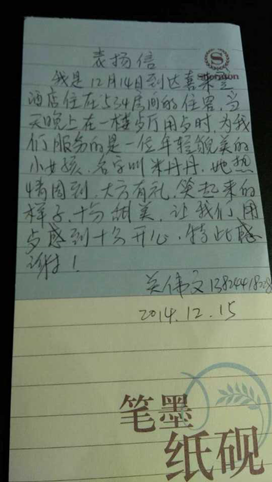 表扬信
Sheraton
我是12月14日到达喜来登
酒店住在534房间的住客,当
天晚上在一楼餐厅用餐时,为我
们服务的是一位年轻貌美的
小女孩,名字叫朱丹丹,她热
情周到,大方有礼,笑起来的
样子,十分甜美,让我们用
餐感到十分开心,特此感
谢!
吴伟文
2014.12.15
笔墨
纸砚